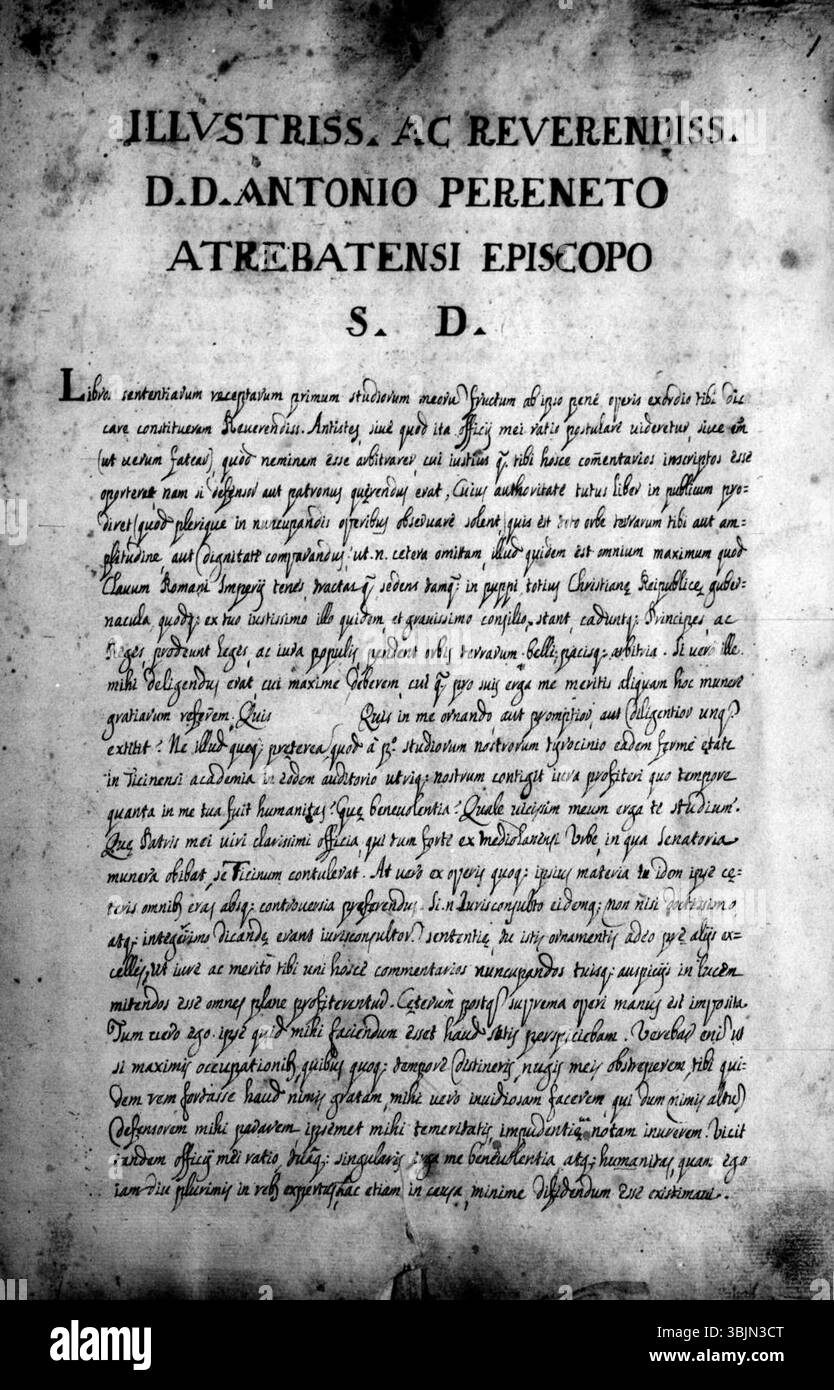 1
ILLVSTRISS. AC REVERENDISS.
D.D. ANTONIO PERENETO
ATREBATENSI EPISCOPO
S. D.
Libros sententiarum receptarum primum studiorum meorū fructum ab ipso penè operis exordio tibi dic
care constitueram Reuerendiss. Antistes, siuè quod ita officij mei ratio postulare uideretur, siue
(ut uerum fatear) quod neminem esse arbitrarer, cui iustius q̃ tibi hosce comẽntarios inscriptos esse
oporteret, nam si defensor aut patronus quęrendus erat, Cuius authoritatè tutus liber in publicum pro-
diret (quod plerique in nuncupandis operibus obseruarè solent) quis est toto orbe terrarum tibi aut am-
plitudine, aut dignitatè comparandus? ut .n. cetera omittam, illud quidem est omnium maximum quod
Clauum Romani Imperij tenes, tractasq; sedens tamq; in puppi totius Christianę Reipublicę guber-
nacula, quodq; ex tuo iustissimo illo quidem, et grauissimo consilio, stant, caduntq; Principes, ac
Reges, prodeunt leges, ac iura populis, pendent orbis terrarum belli, pacisq; arbitria. Si uero ille
mihi deligendus erat, cui maxime deberem, cui q; pro suis erga me meritis aliquam hoc munerè
gratiarum referrem. Quis Quis in me ornando, aut promptior, aut diligentior unq̃
extitit? Ne illud quoq; pręterea, quod à studiorum nostrorum tyrocinio eadem fermè ętate
in Ticinensi academia in eodem auditorio utriq; nostrum contigit iura profiteri quo tempore
quanta in me tua fuit humanitas? Quę beneuolentia? Quale uicisim meum erga tè studium?
Quę Patris mei uiri clarissimi officia, qui tum fortè ex mediolanensi Vrbe, in qua Senatoria
munera obibat, sè Ticinum contulerat. At uero ex operis quoq; ipsius materia tu idem ipse cę-
teris omnib. eras absq; controuersia pręferendus. Si .n. Iurisconsulto eidemq; non nisi doctissimo
atq; integerrimo dicandę erant iurisconsultor. sententię, tu istis ornamentis adeo prę, alijs ex-
cellis, ut iurè ac meritò tibi uni hoscè commentarios nuncupandos tuisq; auspicijs in lucem
mitendos essè omnes planè profiterentur. Cęterum postq̃ suprema operi manus est imposita
Tum uero ego ipse quid mihi faciendum esset haud satis perspiciebam. Verebar enĩ ut
si maximis occupationib. quibus quoq; temporè distineris, nugis meis obstreperem, tibi qui-
dem rem fortasse haud nimis gratam, mihi uero inuidiosam facerem qui dum nimis altum
defensorem mihi pararem, ipsemet mihi temeritatis, impudentięq; notam inurerem. Vicit
tandem officij mei ratio, tuaq; singularis erga me beneuolentia, atq; humanitas, quam ego
iam diu plurimis in reb. expertus, hac etiam in causa, minime difidendum essè existimaui.
alamy
Image ID: 3BJN3CT
www.alamy.com